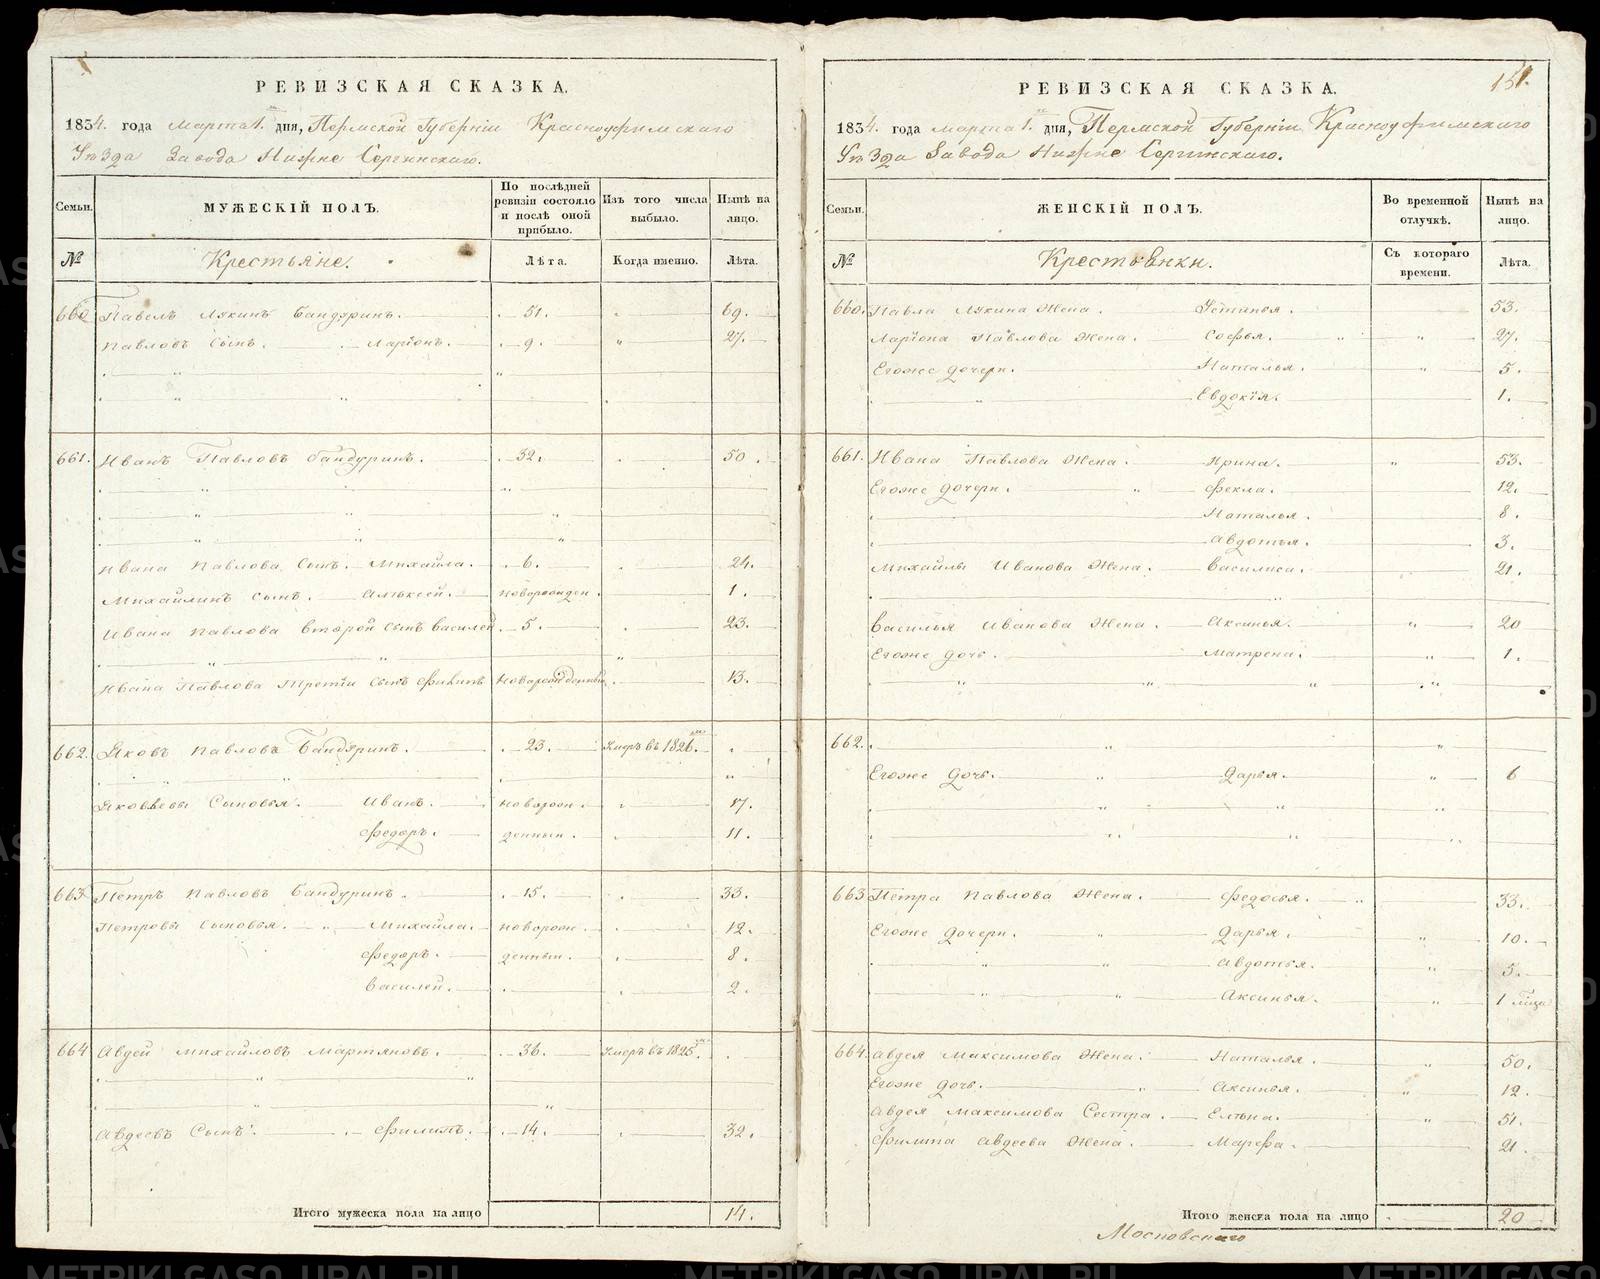 РЕВИЗСКАЯ СКАЗКА.
1834. года марта 1. дня, Пермской Губернiи Красноуфимскаго
Уѣзда Завода Нижне Сергинскаго.
Семьи.
МУЖЕСКIЙ ПОЛЪ.
По послѣдней ревизiи состояло и послѣ оной прибыло.
Изъ того числа выбыло.
Нынѣ на лицо.
№
Крестьяне.
Лѣта.
Когда именно.
Лѣта.
660 Павелъ Лукинъ Бандуринъ. 51. 69.
Павловъ Сынъ. Ларiонъ. 9. 27.
661. Иванъ Павловъ Бандуринъ. 32. 50.
Ивана Павлова Сынъ. Михайла. 6. 24.
Михайлинъ сынъ. Алѣксей. новорожден. 1.
Ивана Павлова второй сынъ василей 5. 23.
Ивана Павлова Третiи сынъ Филипъ новорожденный 13.
662. Яковъ Павловъ Бандуринъ. 23. Умеръ въ 1826.
Яковлевы Сыновья. Иванъ. новорож. 17.
Федоръ. денныи. 11.
663. Петръ Павловъ Бандуринъ. 15. 33.
Петровы Сыновья. Михайла. новорож. 12.
Федоръ. денныи. 8.
Василей. 2.
664 Авдей Михайловъ Мартяновъ. 36. Умеръ въ 1825.
Авдеевъ Сынъ. Филипъ. 14. 32.
Итого мужеска пола на лицо 14.
151.
РЕВИЗСКАЯ СКАЗКА.
1834. года марта 1. дня, Пермской Губернiи Красноуфимскаго
Уѣзда Завода Нижне Сергинскаго.
Семьи.
ЖЕНСКIЙ ПОЛЪ.
Во временной отлучкѣ.
Нынѣ на лицо.
№
Крестьянки.
Съ котораго времени.
Лѣта.
660. Павла Лукина Жена. Устинья. 53.
Ларiона Павлова Жена. Софья. 27.
Егоже дочери. Наталья. 5.
Евдокiя. 1.
661. Ивана Павлова Жена. Ирина. 53.
Егоже дочери. Фекла. 12.
Наталья. 8.
Авдотья. 3.
Михайлы Иванова Жена. Василиса. 21.
Василья Иванова Жена. Аксинья. 20
Егоже дочь. Матрена. 1.
662.
Егоже Дочь. Дарья. 6
663 Петра Павлова Жена. Федосья. 33.
Егоже Дочери. Дарья. 10.
Авдотья. 5.
Аксинья. 1
664. Авдея Максимова Жена. Наталья. 50.
Егоже дочь. Аксинья. 12.
Авдея Максимова Сестра. Елѣна. 51.
Филипа Авдеева Жена. Марфа. 21.
Итого женска пола на лицо 20
Московскаго
METRIKI.GASO-URAL.RU
METRIKI.GASO-URAL.RU
METRIKI.GASO